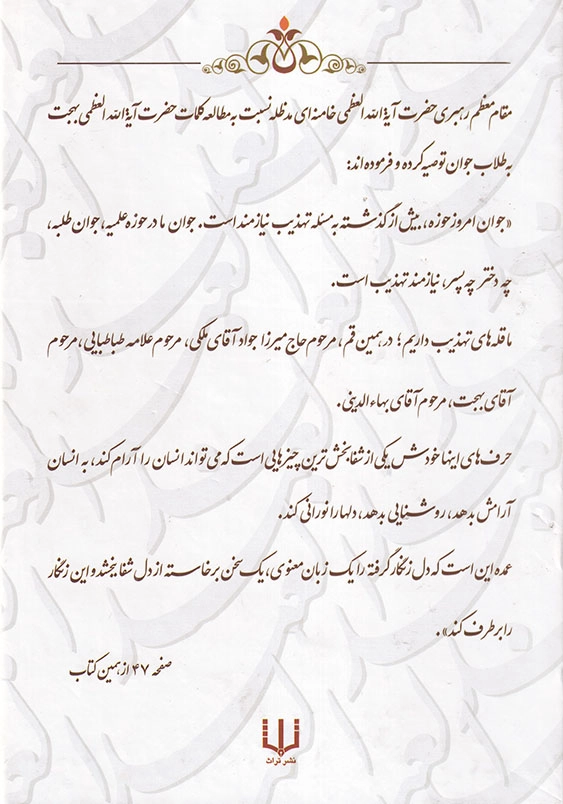 مقام معظم رهبری حضرت آیة الله العظمی خامنه‌ای مدظله نسبت به مطالعه کلمات حضرت آیة الله العظمی بهجت
به طلاب جوان توصیه کرده و فرموده‌اند:
«جوان امروز حوزه، بیش از گذشته به مسئله تهذیب نیازمند است. جوان ما در حوزه علمیه، جوان طلبه،
چه دختر چه پسر، نیازمند تهذیب است.
ما قله‌های تهذیب داریم؛ در همین قم، مرحوم حاج میرزا جواد آقای ملکی، مرحوم علامه طباطبایی، مرحوم
آقای بهجت، مرحوم آقای بهاءالدینی.
حرف‌های اینها خودش یکی از شفابخش‌ترین چیزهایی است که می‌تواند انسان را آرام کند، به انسان
آرامش بدهد، روشنایی بدهد، دلها را نورانی کند.
عمده این است که دل زنگار گرفته را یک زبان معنوی، یک سخن برخاسته از دل شفا ببخشد و این زنگار
را برطرف کند».
صفحه ۴۷ از همین کتاب
نشر تراث